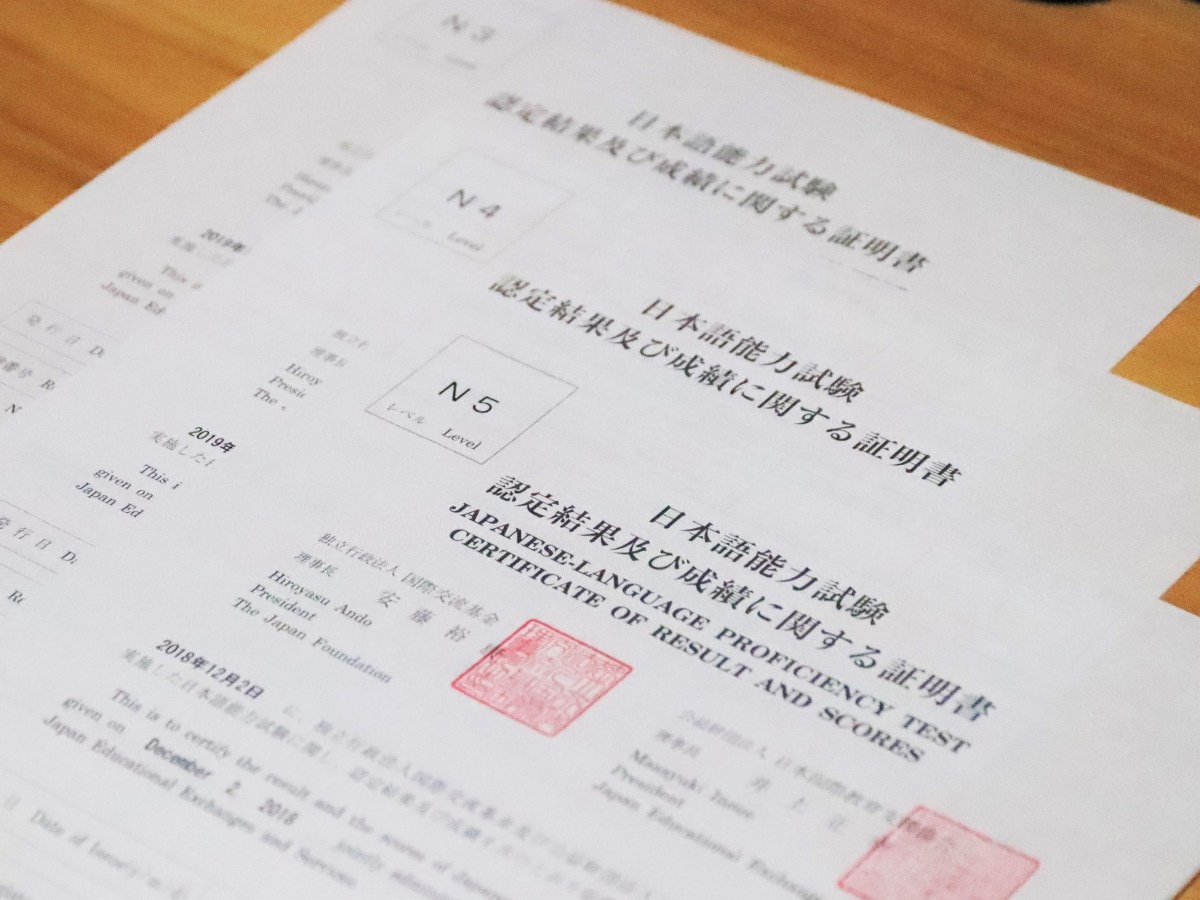 N 3
日本語能力試験
認定結果及び成績に関する証明書
N 4
レベル Level
日本語能力試験
認定結果及び成績に関する証明書
N 5
レベル Level
日本語能力試験
認定結果及び成績に関する証明書
JAPANESE-LANGUAGE PROFICIENCY TEST
CERTIFICATE OF RESULT AND SCORES
2019年
This i
given on
Japan Ed
発 行 日 Da
N
理事長
Hiroy
Presid
The
2019年
実施した
This i
given on
Japan Ed
発 行 日 Da
独立行政法人 国際交流基金
理事長 安 藤 裕
Hiroyasu Ando
President
The Japan Foundation
公益財団法人 日本国際教育支援協会
理事長 井 上 正
Masayuki Inoue
President
Japan Educational Exchang
2018年12月2日 に、独立行政法人国際交流基金及び公益財団法人
実施した日本語能力試験に関し、認定結果及び成績を
This is to certify the result and the scores of Japan
given on December 2, 2018 , jointly admin
Japan Educational Exchanges and Services.